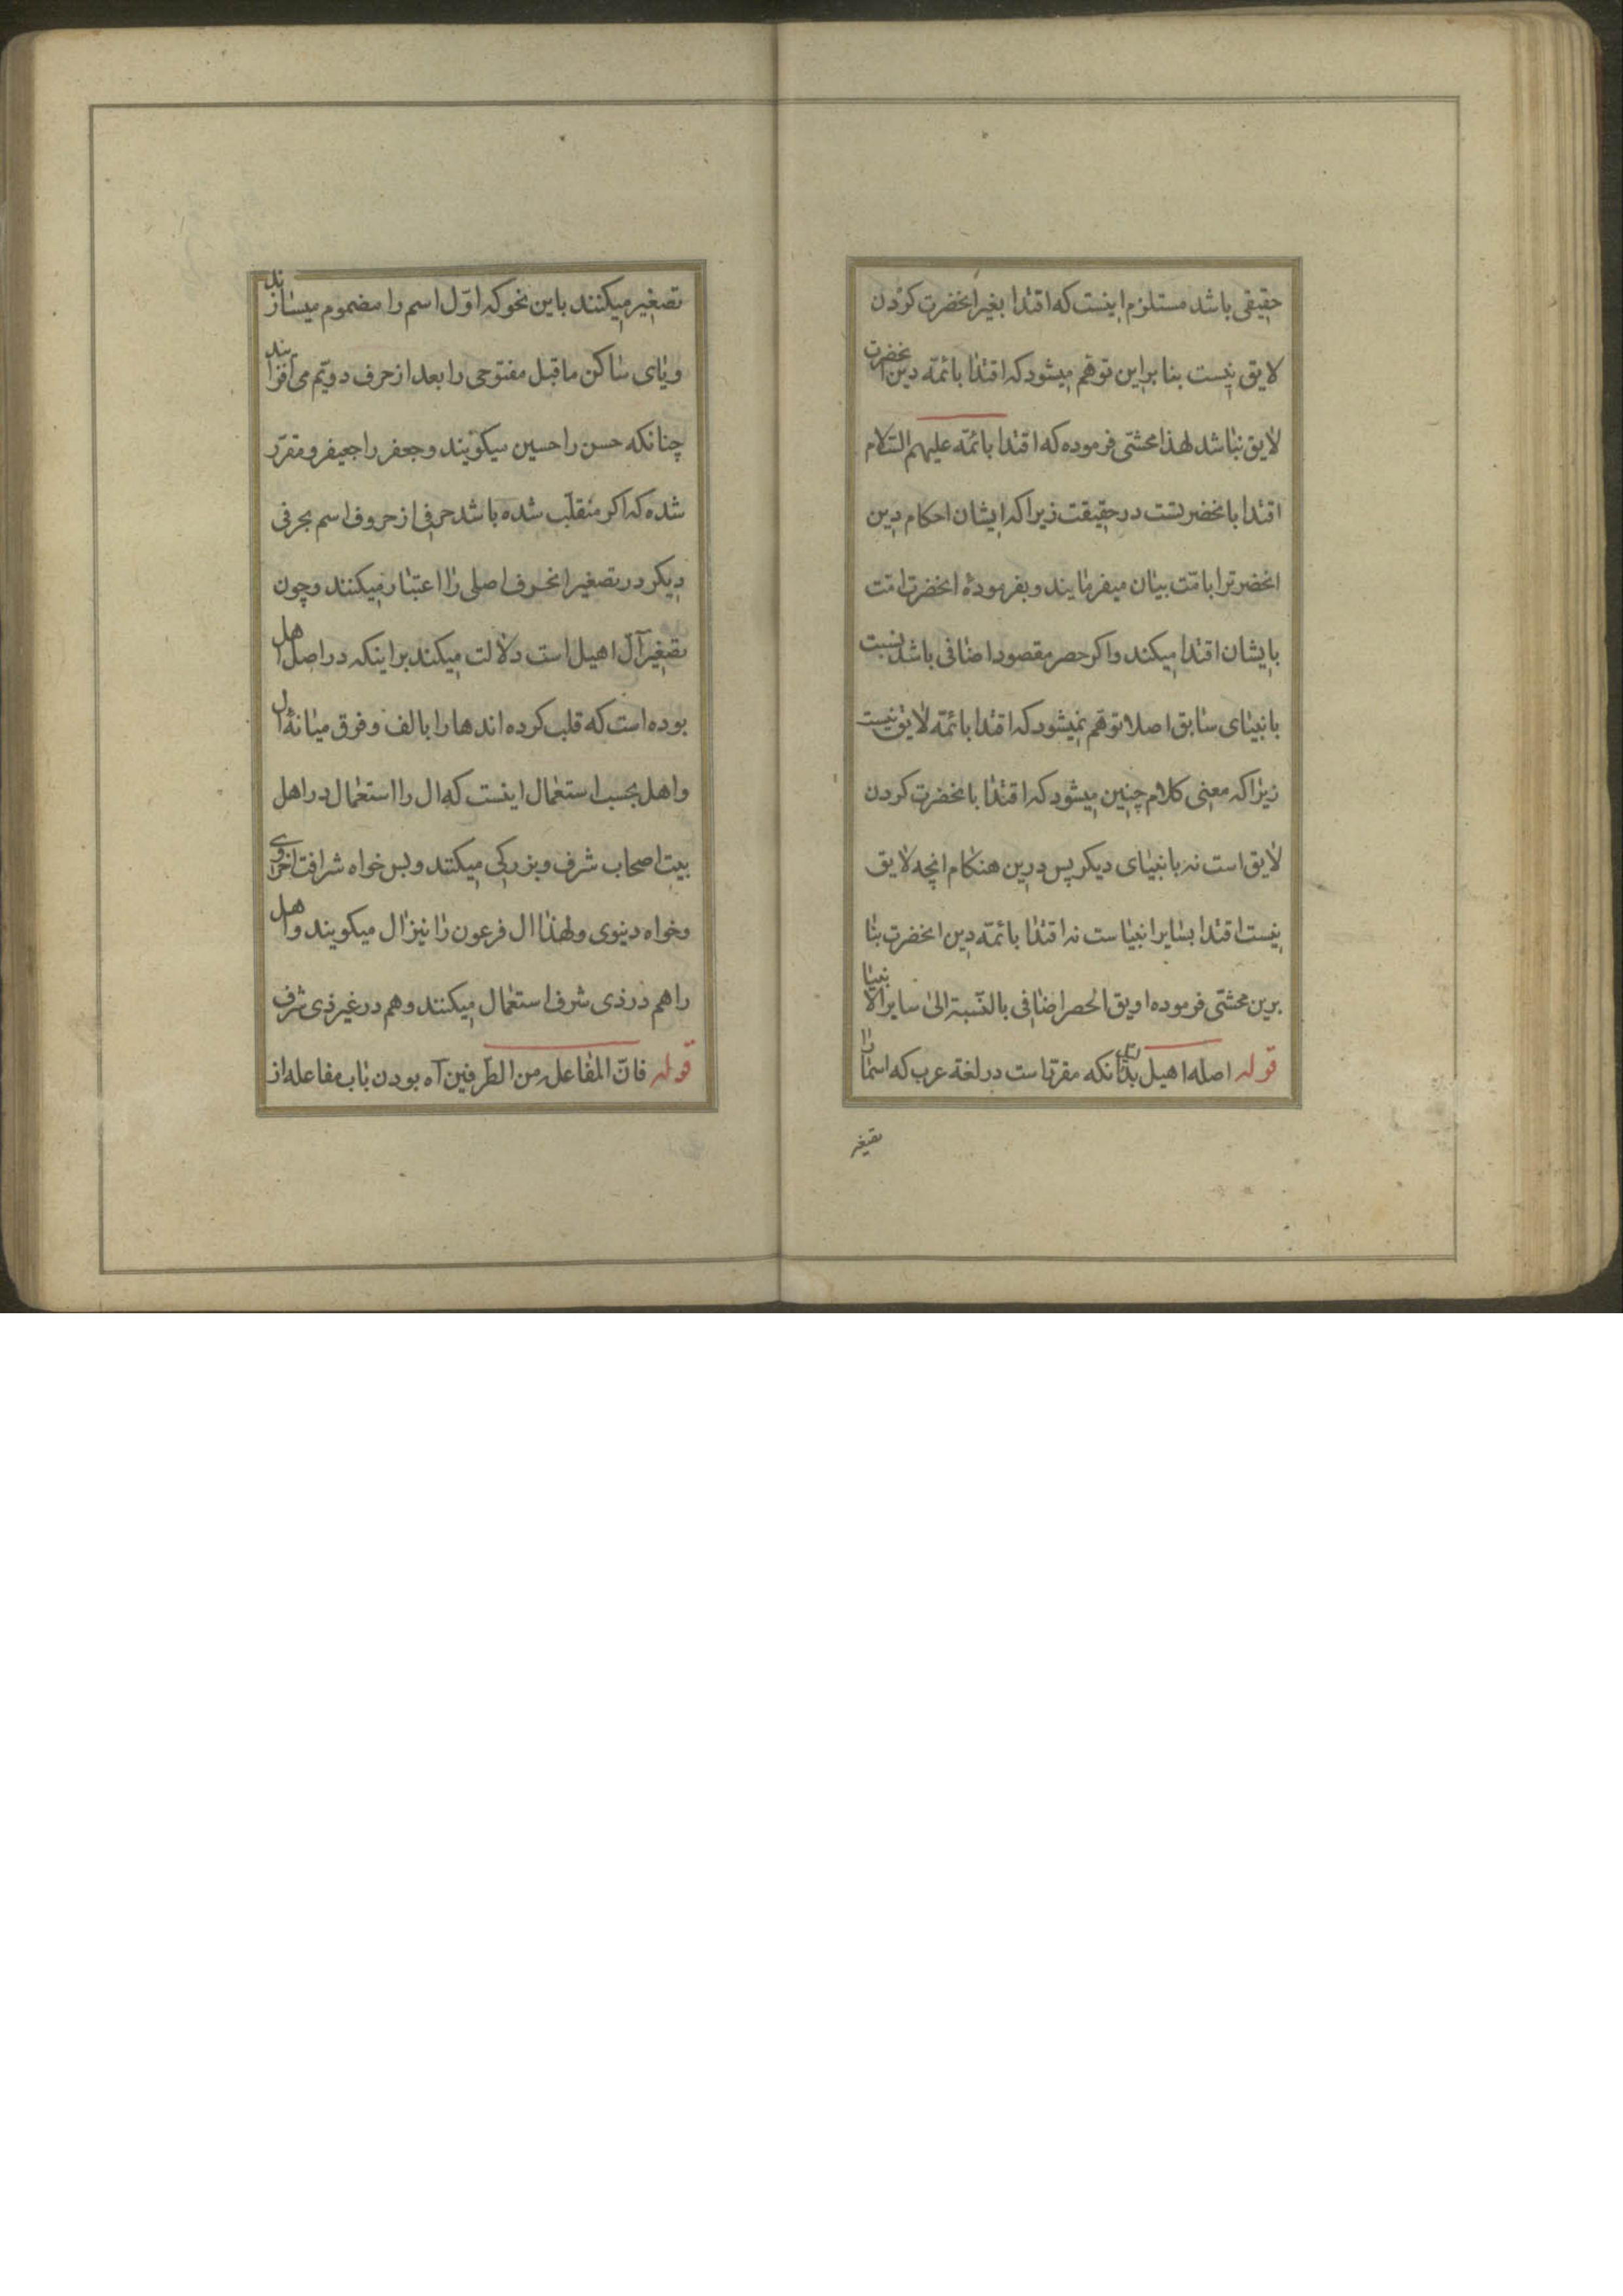 حقیقی باشد مستلزم اینست که اقتدا بغیر انحضرت کردن
لایق نیست بنابراین توهّم میشود که اقتدا بائمّه دین انحضرت
لایق نباشد لهذا محشّی فرموده که اقتدا بائمّه علیهم السّلام
اقتدا بانحضرتست در حقیقت زیرا که ایشان احکام دین
انحضرترا بامّت بیان میفرمایند و بفرمودهٔ انحضرت امّت
بایشان اقتدا میکند و اکر حصر مقصود اضافی باشد نسبت
بانبیای سابق اصلا توهّم نمیشود که اقتدا بائمّه لایق نیست
زیرا که معنی کلام چنین میشود که اقتدا بانحضرت کردن
لایق است نه بانبیای دیکر پس درین هنکام انچه لایق
نیست اقتدا بسایر انبیاست نه اقتدا بائمّه دین انحضرت بنا
برین محشّی فرموده اویق الحصر اضافی بالنّسبة الی سایر الانبیا
قوله اصله اهیل بدانکه مقرّراست در لغة عرب که اسما را
تصغیر
تصغیر میکنند باین نحو که اوّل اسم را مضموم میسازند
و یای ساکن ماقبل مفتوحی را بعد از حرف دویّم می افزایند
چنانکه حسن را حسین میکویند و جعفر را جعیفر و مقرّر
شده که اکر منقلب شده باشد حرفی از حروف اسم بحرفی
دیکر در تصغیر انحرف اصلی را اعتبار میکنند و چون
تصغیر آل اهیل است دلالت میکند بر اینکه در اصل اهل
بوده است که قلب کرده اند ها را بالف و فرق میانهٔ ال
و اهل بحسب استعمال اینست که ال را استعمال در اهل
بیت اصحاب شرف و بزرکی میکنند و بس خواه شرافت اخروی
و خواه دینوی و لهذا ال فرعون را نیز ال میکویند و اهل
را هم در ذی شرف استعمال میکنند و هم در غیر ذی شرف
قوله فانّ المفاعله من الطّرفین آه بودن باب مفاعله از